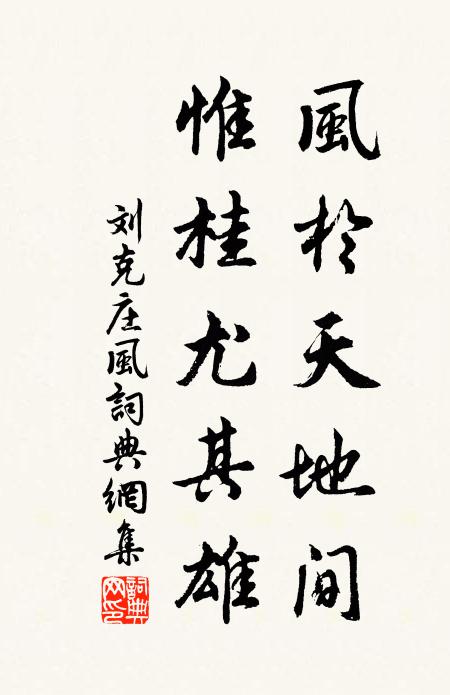 風於天地间
惟桂尤其雄
刘克庄風詞典網集
詞典网印